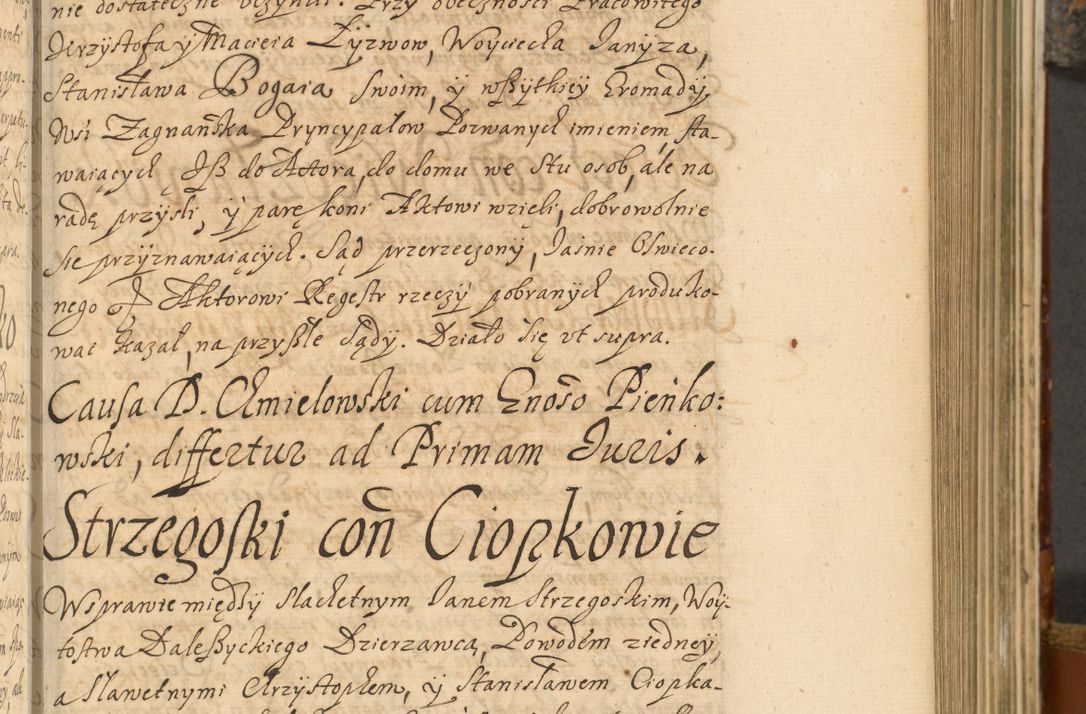 nie dostateczne uczynił. Przy obecznosci Pracowitego
Krzysztofa ÿ Macieia Łyzwow, Woyciecha Janyza,
Stanisława Bogaia swoim, ÿ wszytkiey Gromady,
Wsi Zagnańska Pryncypałow Pozwanych imieniem sta-
waiących, Isz do Aktora, do domu we stu osob, ale na
radę przyśli, ÿ parę koni Aktowi wzieli, dobrowolnie
sie przyznawaiących. Sąd przerzeczony, Jaśnie Oświeco-
nego Aktorowi Regestr rzeczÿ pobranych produko-
wac kazał, na przyszłe sądy. Działo się vt supra.
Causa D. Chmielowski cum Gnoso Pieńko:
wski, differtur ad Primam Juris.
Strzegoski con Ciopkowie
W sprawie między Slachetnym Janem Strzegoskim, Woy-
tostwa Daleszyckiego Dzierzawcą, Powodem z iedney,
a Sławetnymi Chrzystophem, ÿ Stanisławem Ciopka-